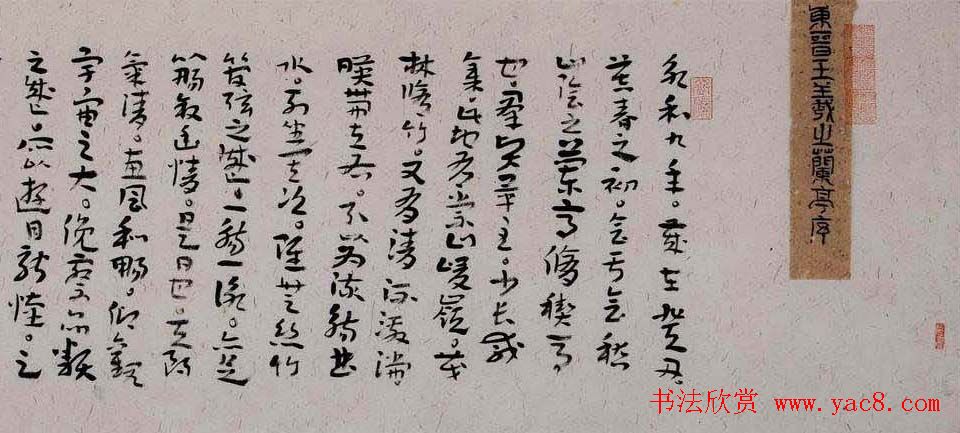 東晉王羲之蘭亭序
永和九年。歲在癸丑。
暮春之初。會于會稽
山陰之蘭亭脩禊事
也。群賢畢至。少長咸
集此地有崇山峻嶺。茂
林脩竹。又有清流激湍。
暎帶左右。引以為流觴曲
水。列坐其次。雖無絲竹
管弦之盛。一觴一詠。亦足
暢敘幽情。是日也。天朗
氣清。惠風和暢。仰觀
宇宙之大。俯察品類
之盛所以遊目騁懷。足
书法欣赏 www.yac8.com